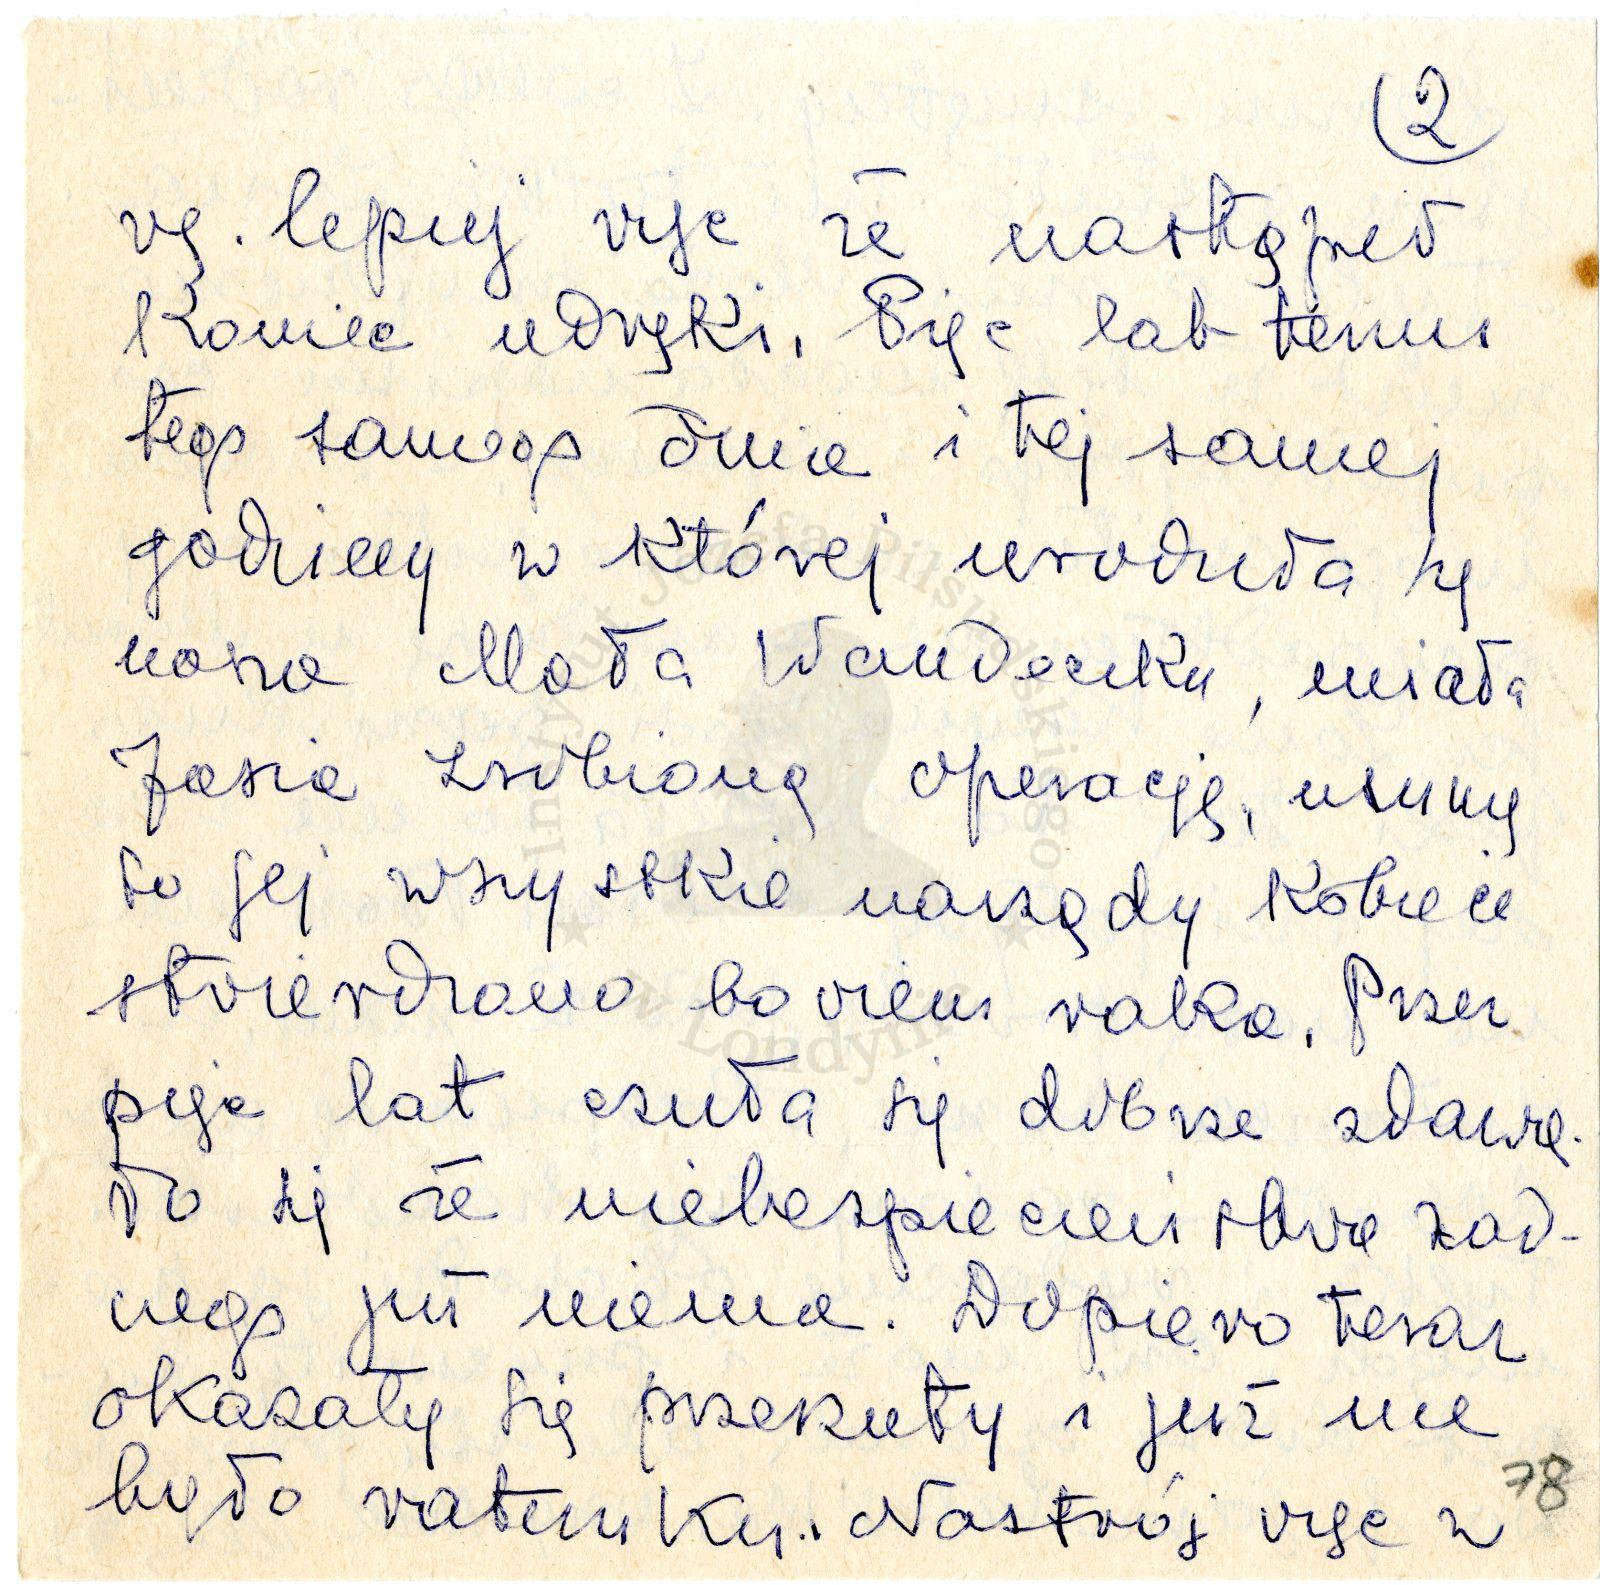 2
wą. lepiej więc że nastąpił
Koniec udręki. Pięć lat temu
tego samego dnia i tej samej
godziny w której urodziła się
nasza Mała Wandeczka, miała
Jasia zrobioną operację, usunię
to jej wszystkie narządy kobiece
stwierdzono bowiem raka. Przez
pięć lat czuła się dobrze zdawa-
ło się że niebezpieczeństwa żad-
nego już niema. Dopiero teraz
okazały się przerzuty i już nie
było ratunku.. Nastrój więc w
78
Instytut Józefa Piłsudskiego
w Londynie